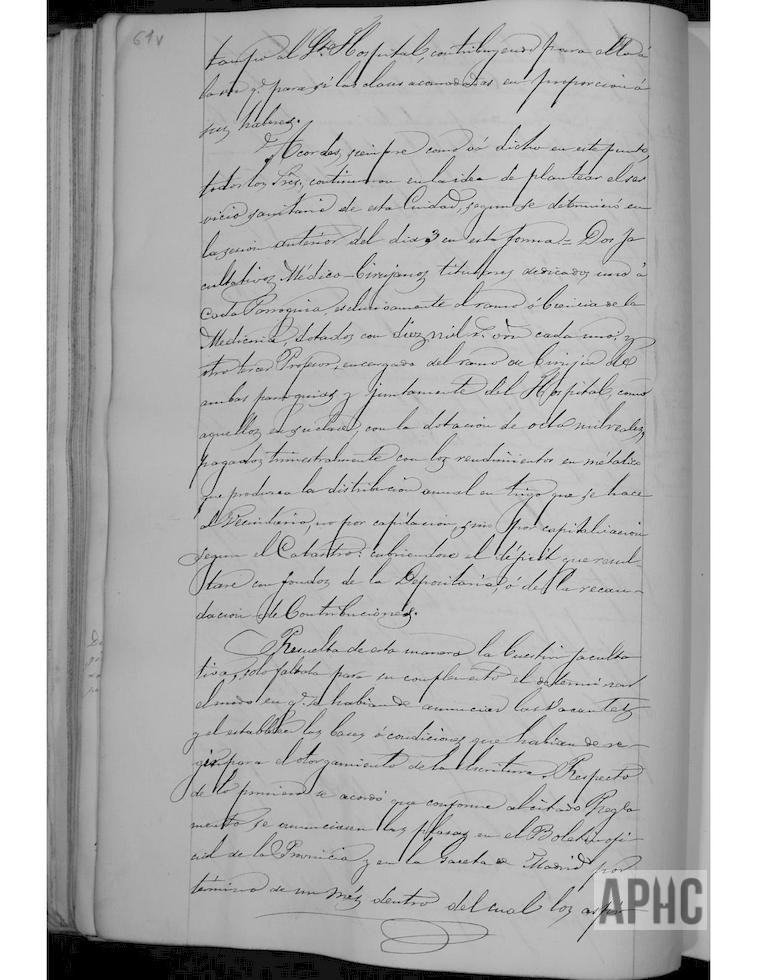 61v
tampo al Sto. Hospital, contribuyendo para ello á
la vez qe. para sí las clases acomodadas en proporcion á
sus haberes.
Acordes, siempre como vá dicho en este punto,
todos los Sres., continuaron en la idea de plantear el ser
vicio sanitario de esta Ciudad, segun se determinó en
la sesion anterior del dia 3 en esta forma = Dos fa
cultativos Médico-Cirujanos titulares dedicados uno á
Cada Parroquia, esclusivamente al ramo ó Ciencia de la
Medicina, dotados con diez mil r. von cada uno; y
otro tercer Profesor, encargado del ramo de Cirujia de
ambas parroquias y juntamente del Hospital, como
aquellos en su clase, con la dotacion de ocho mil reales,
pagados trimestralmente con los rendimientos en metalico
que produzca la distribucion anual en trigo que se hace
al Vecindario, no por capitacion, sino por capitalizacion
segun el Catastro: cubriendose el déficit que resul-
tare con fondos de la Depositaria, ó de la recau-
dacion de Contribuciones.
Resuelta de esta manera la Cuestion faculta
tiva, solo faltaba para su complemento el determinar
el modo en qe. se habian de anunciar las Vacantes
y el establecer las bases ó condiciones que habian de re-
gir para el otorgamiento de la Escritura. Respecto
de lo primero se acordó que conforme al citado Regla
mento se anunciasen las plazas en el Boletin ofi-
cial de la Provincia y en la Gaceta de Madrid por
término de un mes dentro del cual los aspi-
APHC